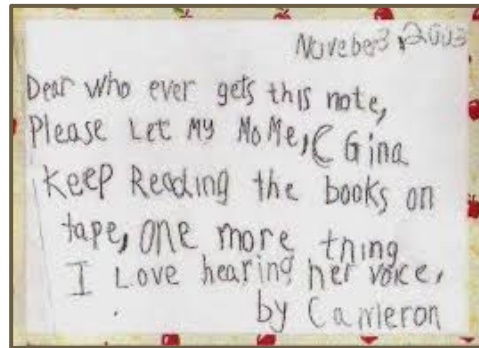 Noveber3, 2003
Dear who ever gets this note,
Please Let My MoMe, C Gina
Keep Reading the books on
tape, one more thing
I Love hearing her voice,
by Cameron